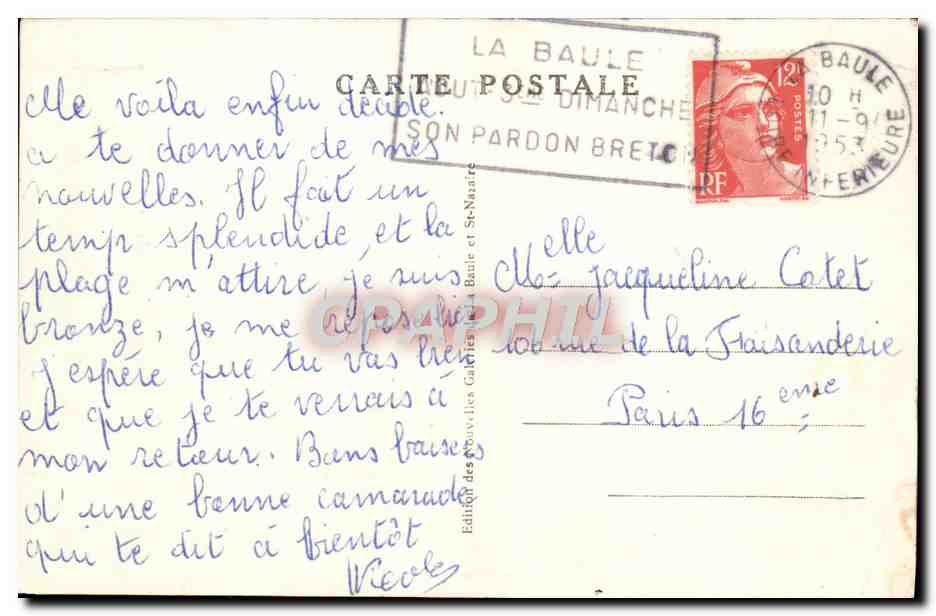 LA BAULE
AOUT 3me DIMANCHE
SON PARDON BRETON
CARTE POSTALE
12F
POSTES
RF
LA BAULE
10 H
11-9
1953
LOIRE INFERIEURE
Me voila enfin décidé
a te donner de mes
nouvelles. Il fait un
temp splendide, et la
plage m'attire, je suis
bronzé, je me repose bien
J'espère que tu vas bien
et que je te verrais à
mon retour. Bons baisers
d'une bonne camarade
qui te dit à bientôt
Edition des Nouvelles Galeries La Baule et St-Nazaire
Melle Jacqueline Catet
106 rue de la Faisanderie
Paris 16eme
CPAPHIL